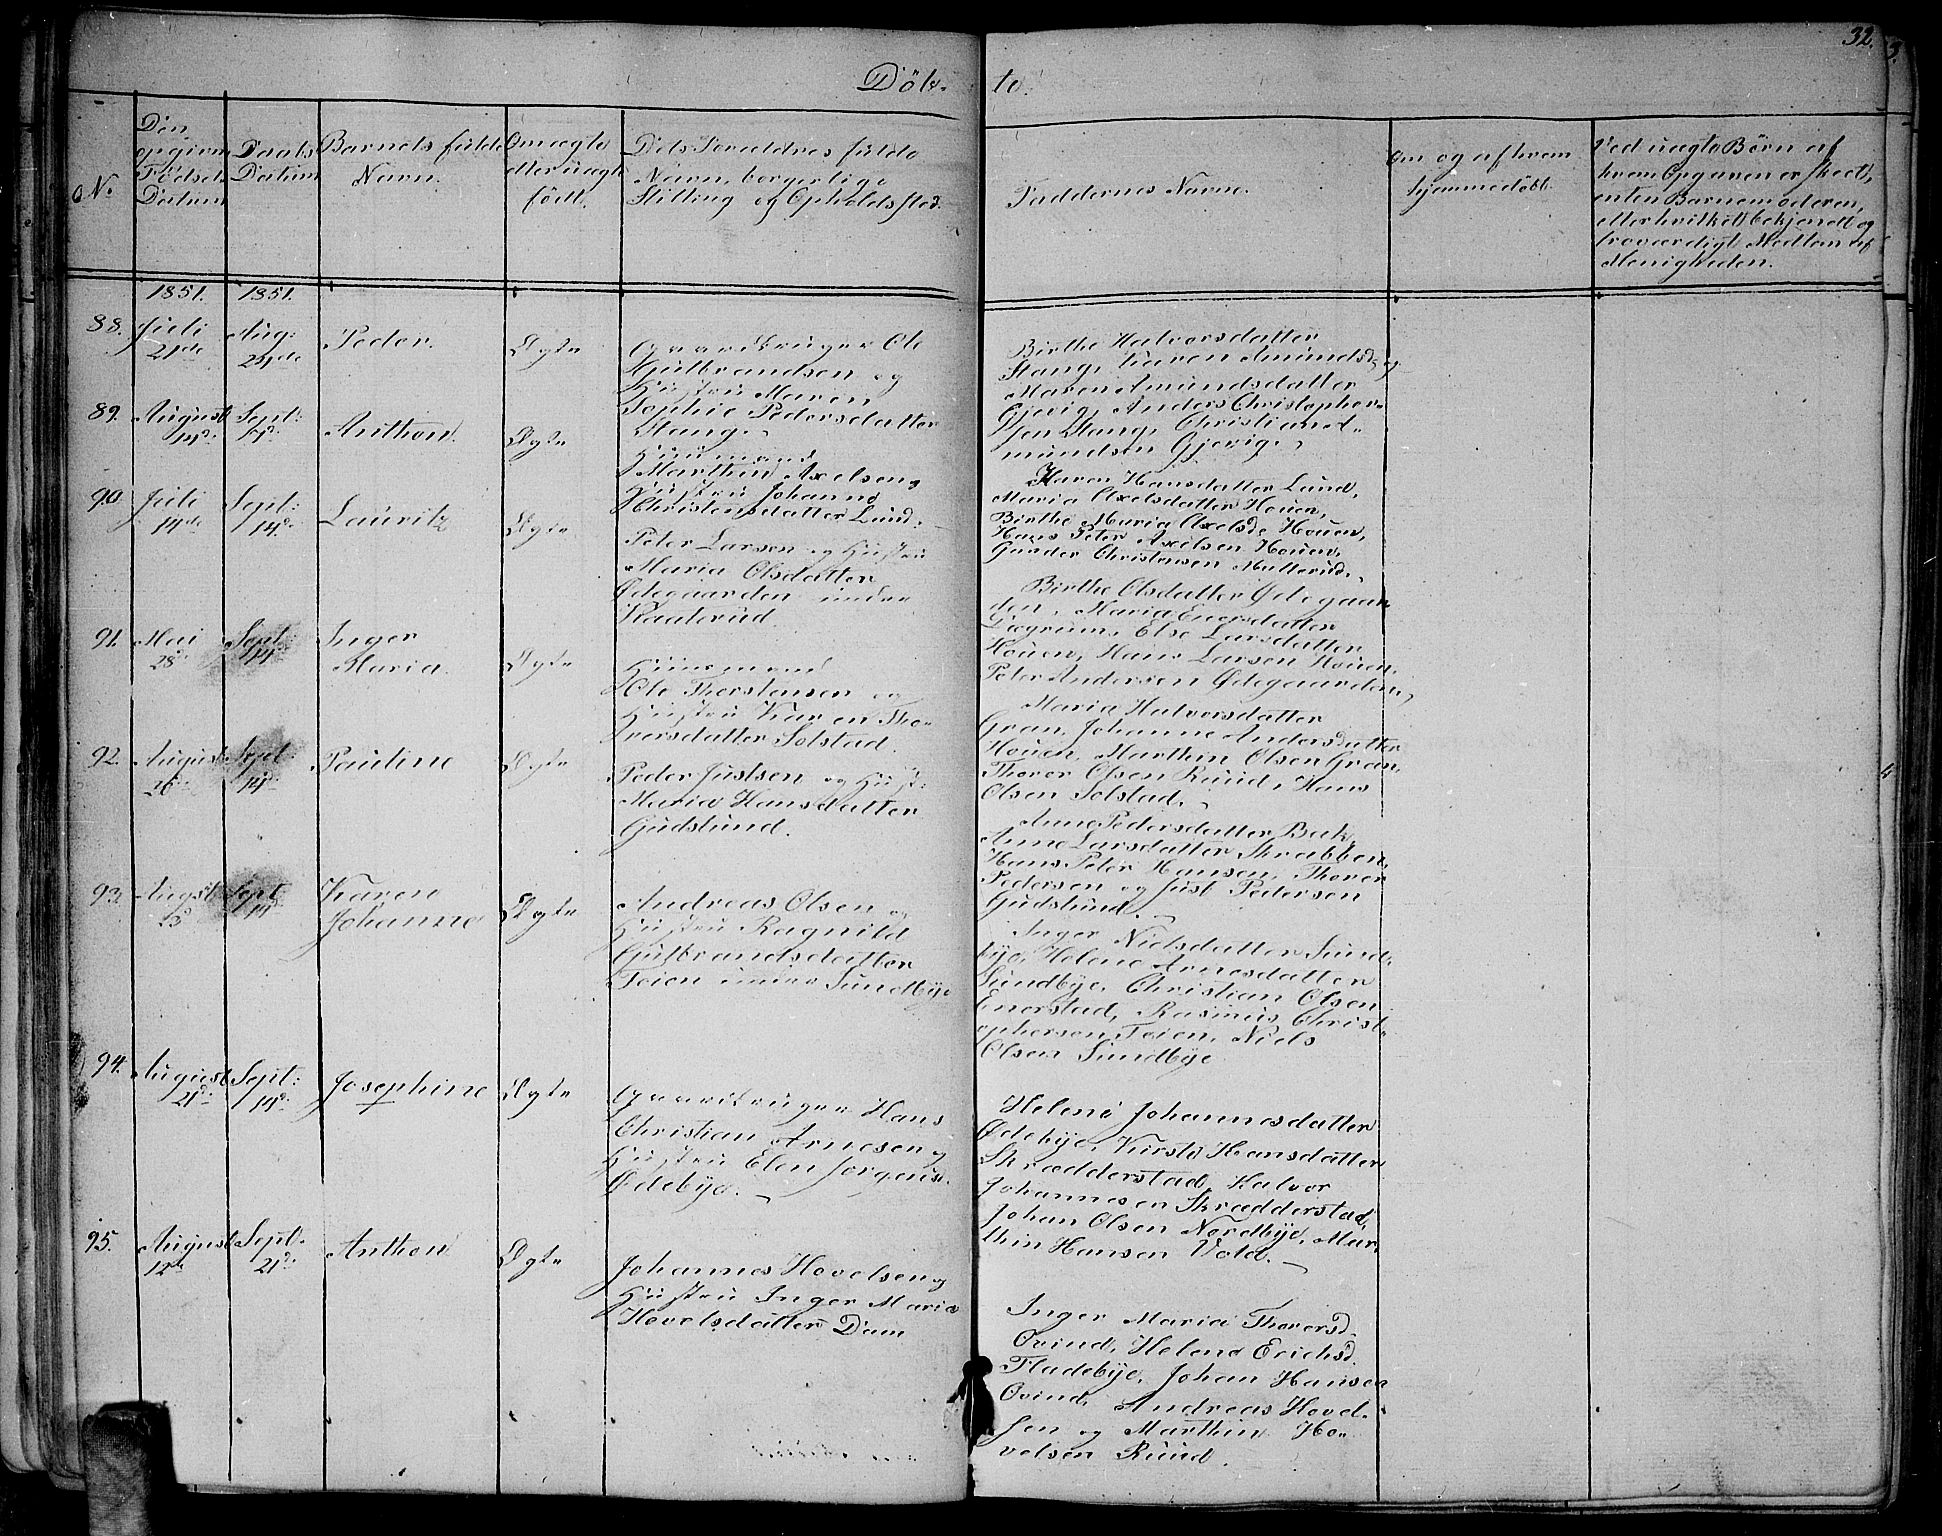 32.
Döb-
te.
No
Den
opgivne
Födsels
Datum
Daabs
Datum
Barnets fulde
Navn.
Om ægte
eller uægte
födt.
Dets Forældres fulde
Navn, borgerlige
Stilling og Opholdssted.
Faddernes Navne.
Om og af hvem
hjemmedöbt.
Ved uægte Börn af
hvem Opgaven er skeet,
enten Barnemoderen,
eller hvilket bekjendt og
troværdigt Medlem af
Menigheden.
1851.
1851.
88.
Juli
21de
Aug:
Peder.
Ægte
Gaardbruger Ole
Gulbrandsen og
Hustru Maren
Sophie Pedersdatter
Stang.
Birthe Halvorsdatter
Stang, Karen Amundsd. og
Maren Amundsdatter
Gjevig, Anders Christopher-
sen Stang, Christian
mundsen Gjevig.
89.
August
Sept:
Anthon.
Ægte
Huusmand
Marthin Axelsen og
Hustru Johanne
Christensdatter Lund.
Karen Hansdatter Lund,
Maria Axelsdatter Houen,
Birthe Maria Axelsd. Houen,
Hans Peter Axelsen Houen,
Gunder Christensen Mutterud.
90.
Juli
19de
Sept:
14d.
Lauritz
Ægte
Peter Larsen og Hustru
Maria Olsdatter
Ødegaarden under
Kaaterud.
Birthe Olsdatter Ødegaar-
den, Maria Enersdatter
Dægrum, Else Larsdatter
Houen, Hans Larsen Houen,
Peter Andersen Ødegaarden,
91.
Mai
28d.
Sept:
14d.
Inger
Maria.
Ægte
Huusmand
Ole Thorstensen og
Hustru Karen Tho-
versdatter Solstad.
Maria Halvorsdatter
Gran, Johanne Andersdatter
Houen, Marthin Olsen Gran,
Thorer Olsen Ruud, Hans
Olsen Solstad.
92.
August
26d.
Sept:
14d.
Pauline
Ægte
Peder Justsen og Hust:
Maria Hansdatter
Gudslund.
Anne Pedersdatter Bak,
Anne Larsdatter Skrabben,
Hans Peter Hansen, Thorer
Pedersen og Just Pedersen
Gudslund.
93.
Augst
Sept
14
Karen
Johanne
Ægte
Andreas Olsen og
Hustru Ragnild
Gulbrandsdatter
Teien under Sundbye
Inger Nielsdatter Sund-
bye, Helene Arnesdatter
Sundbye, Christian Olsen
Enerstad, Rasmus Christ-
ophersen Teien, Niels
Olsen Sundbye
94.
August
21d.
Sept:
14d.
Josephine
Ægte
Gaardbruger Hans
Christian Arnesen og
Hustru Elen Jörgensd.
Ødebye.
Helene Johannesdatter
Ødebye, Kirste Hansdatter
Skrædderstad, Halvor
Johannesen Skrædderstad,
Johan Olsen Nordbye, Mar-
thin Hansen Vold.
95.
August
12de
Sept.
21d.
Anthon
Ægte
Johannes Hovelsen og
Hustru Inger Maria
Hovelsdatter Dam
Inger Maria Thorersd.
Ovind, Helene Erichsd.
Fladebye, Johan Hansen
Ovind, Andreas Hovel-
sen og Marthin Ho-
velsen Ruud.